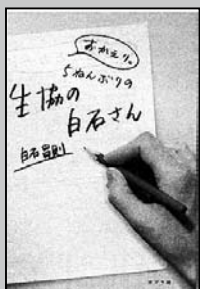 おかえり。
5ねんぶりの
生協の
白石さん
白石昌則
ポプラ社